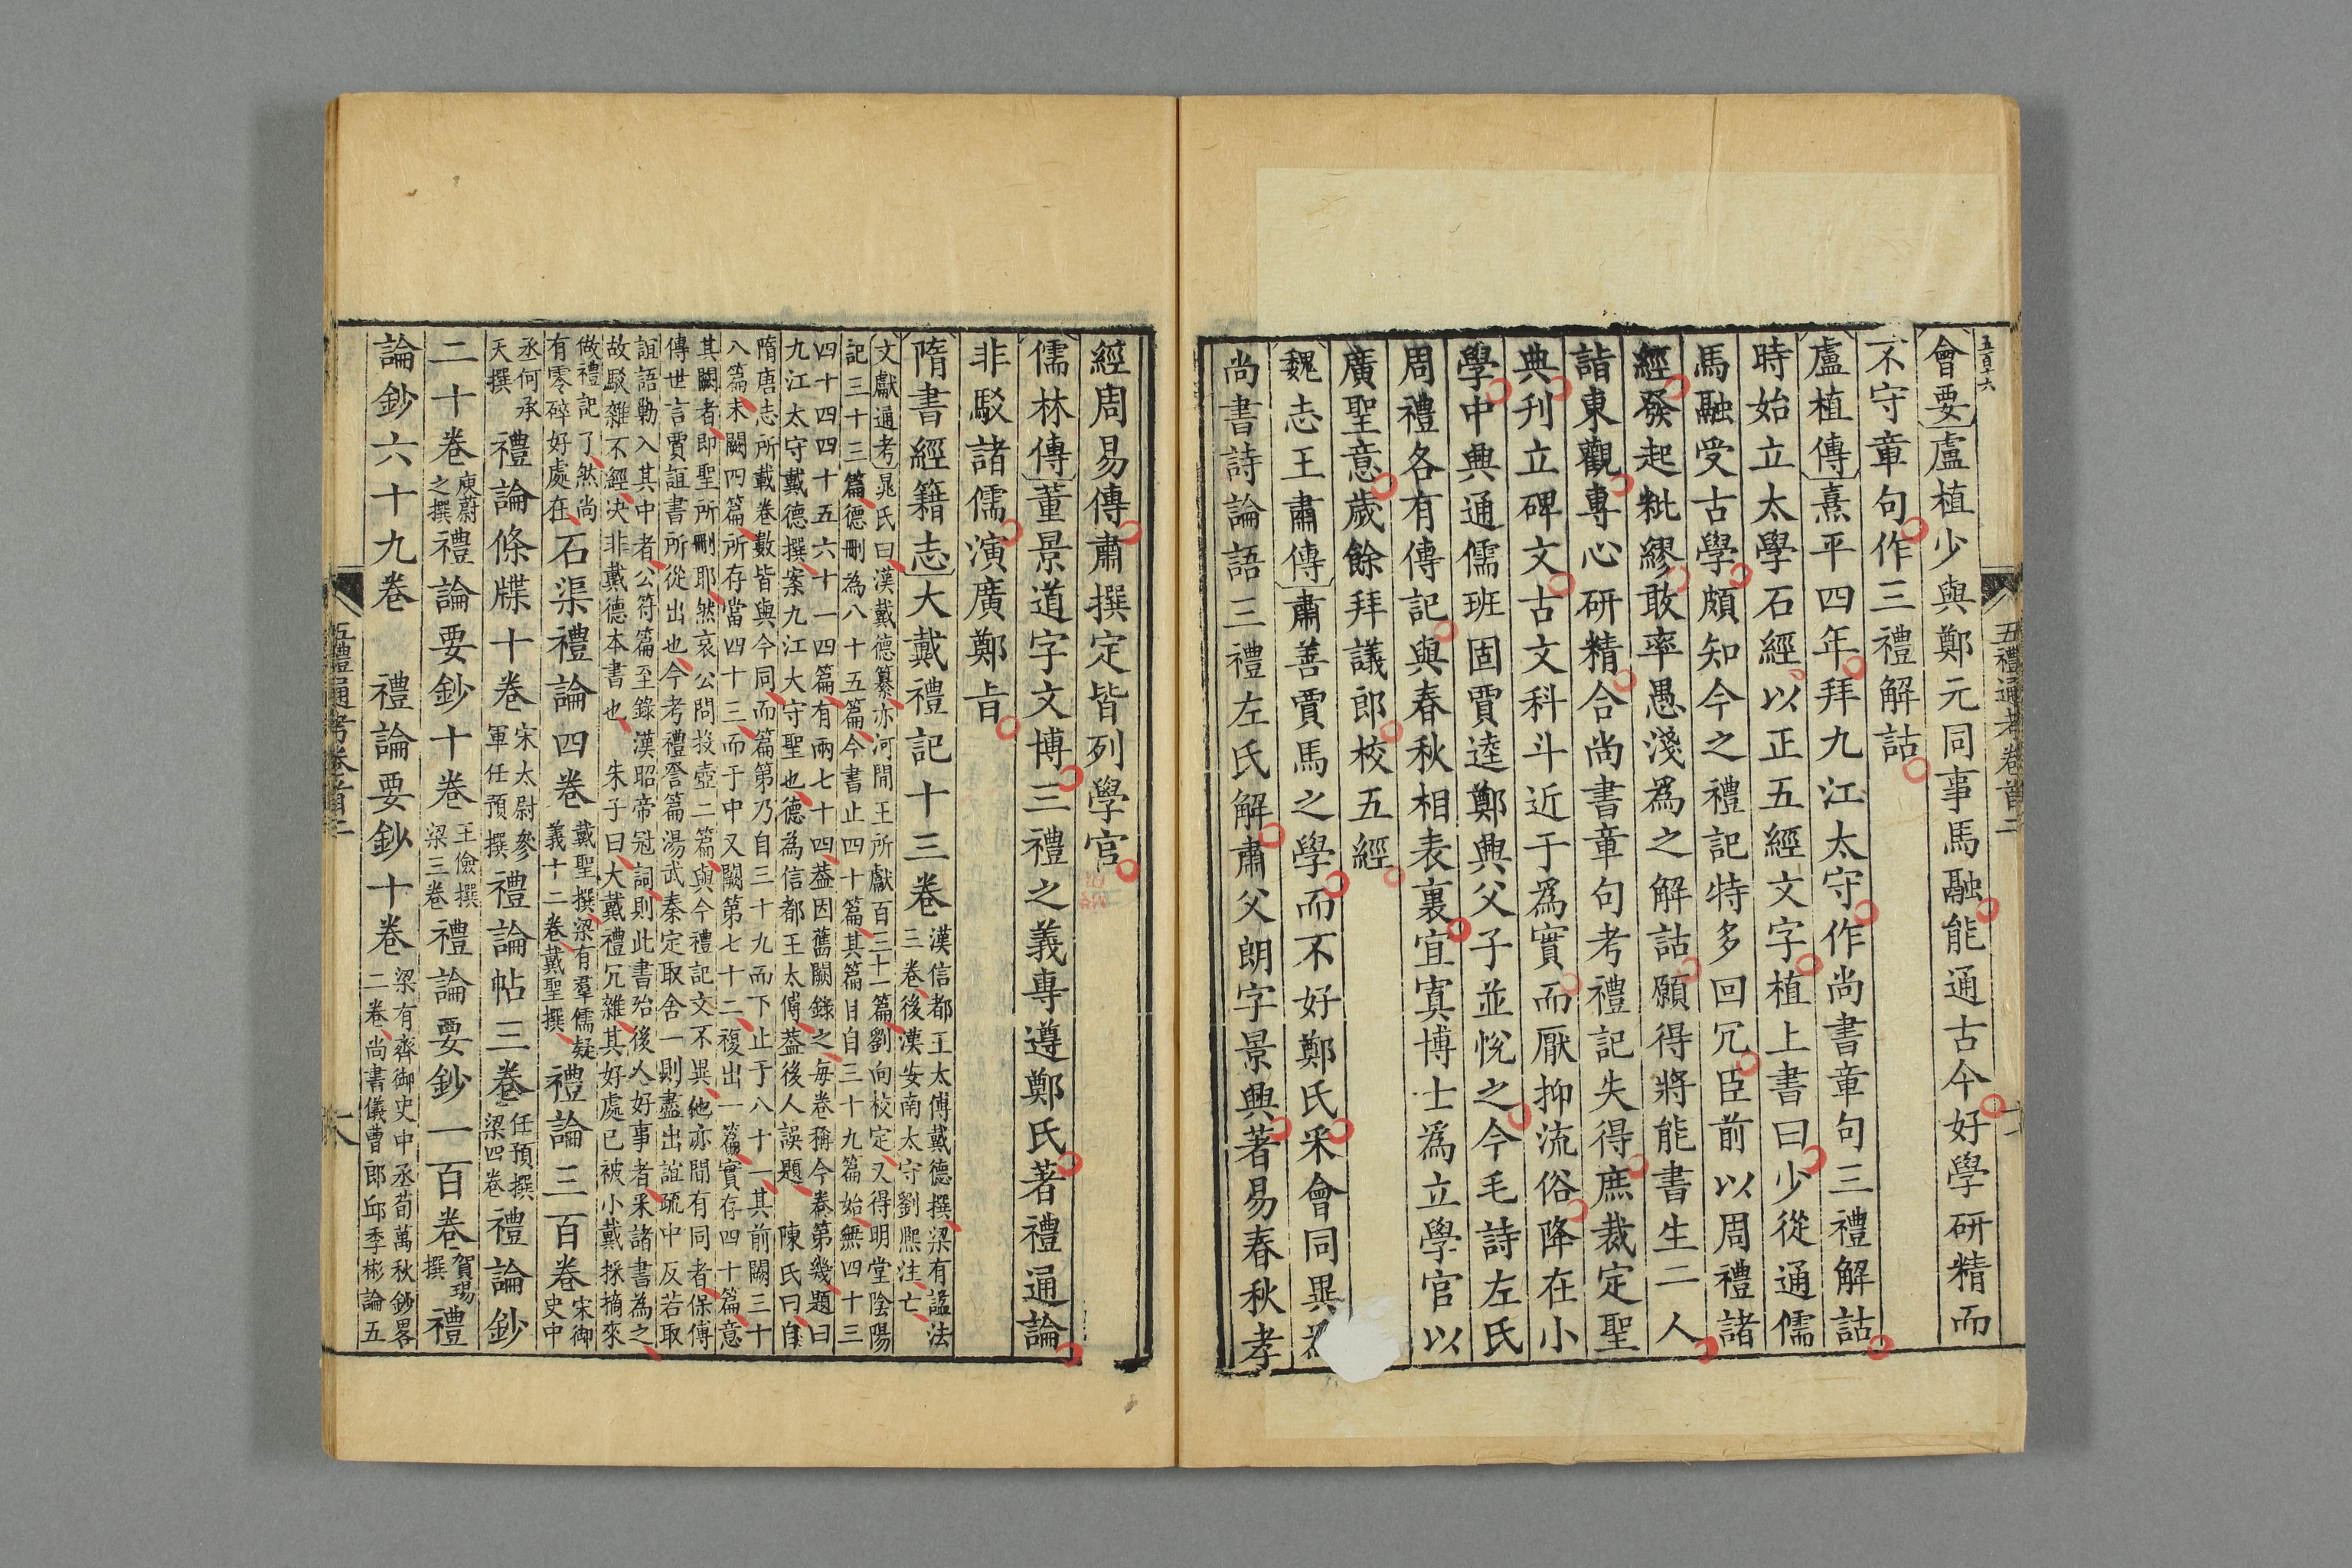 五百十六
五禮通考卷首二
會要盧植少與鄭元同事馬融能通古今好學研精而
不守章句作三禮解詁
盧植傳熹平四年拜九江太守作尚書章句三禮解詁
時始立太學石經以正五經文字植上書曰少從通儒
馬融受古學頗知今之禮記特多回冗臣前以周禮諸
經發起粃繆敢率愚淺為之解詁願得將能書生二人
詣東觀專心研精合尚書章句考禮記失得庶裁定聖
典刊立碑文古文科斗近于為實而厭抑流俗降在小
學中興通儒班固賈逵鄭興父子並悅之今毛詩左氏
周禮各有傳記與春秋相表裏宜寘博士為立學官以
廣聖意歲餘拜議郎校五經
魏志王肅傳肅善賈馬之學而不好鄭氏采會同異為
尚書詩論語三禮左氏解肅父朗字景興著易春秋孝
經周易傳肅撰定皆列學官
儒林傳董景道字文博三禮之義專遵鄭氏著禮通論
非駁諸儒演廣鄭㫖
隋書經籍志大戴禮記十三卷漢信都王太傅戴德撰梁有諡法
三卷後漢安南太守劉熙注亡
文獻通考晁氏曰漢戴德纂亦河間王所獻百三十一篇劉向校定又得明堂陰陽
記三十三篇德刪為八十五篇今書止四十篇其篇目自三十九篇始無四十三
四十四四十五六十一四篇有兩七十四葢因舊闕錄之每卷稱今卷第幾題曰
九江太守戴德撰案九江大守聖也德為信都王太傅葢後人誤題 陳氏曰自
隋唐志所載卷數皆與今同而篇第乃自三十九而下止于八十一其前闕三十
八篇末闕四篇所存當四十三而于中又闕第七十二複出一篇實存四十篇意
其闕者即聖所刪耶然哀公問投壺二篇與今禮記文不異他亦間有同者保傅
傳世言賈誼書所從出也今考禮詧篇湯武秦定取舍一則盡出誼疏中反若取
誼語勦入其中者公符篇至錄漢昭帝冠詞則此書殆後人好事者采諸書為之
故駁雜不經決非戴德本書也 朱子曰大戴禮冗雜其好處已被小戴採摘來
做禮記了然尚
有零碎好處在石渠禮論四卷戴聖撰梁有羣儒疑
義十二卷戴聖撰禮論三百卷宋御
史中
丞何承
天撰禮論條牒十卷宋太尉參
軍任預撰禮論帖三卷任預撰
梁四卷禮論鈔
二十卷庾蔚
之撰禮論要鈔十卷王儉撰
梁三卷禮論要鈔一百卷賀瑒
撰禮
論鈔六十九卷 禮論要鈔十卷梁有齊御史中丞荀萬秋鈔畧
二卷尚書儀曹郎邱季彬論五
五禮通考卷首二